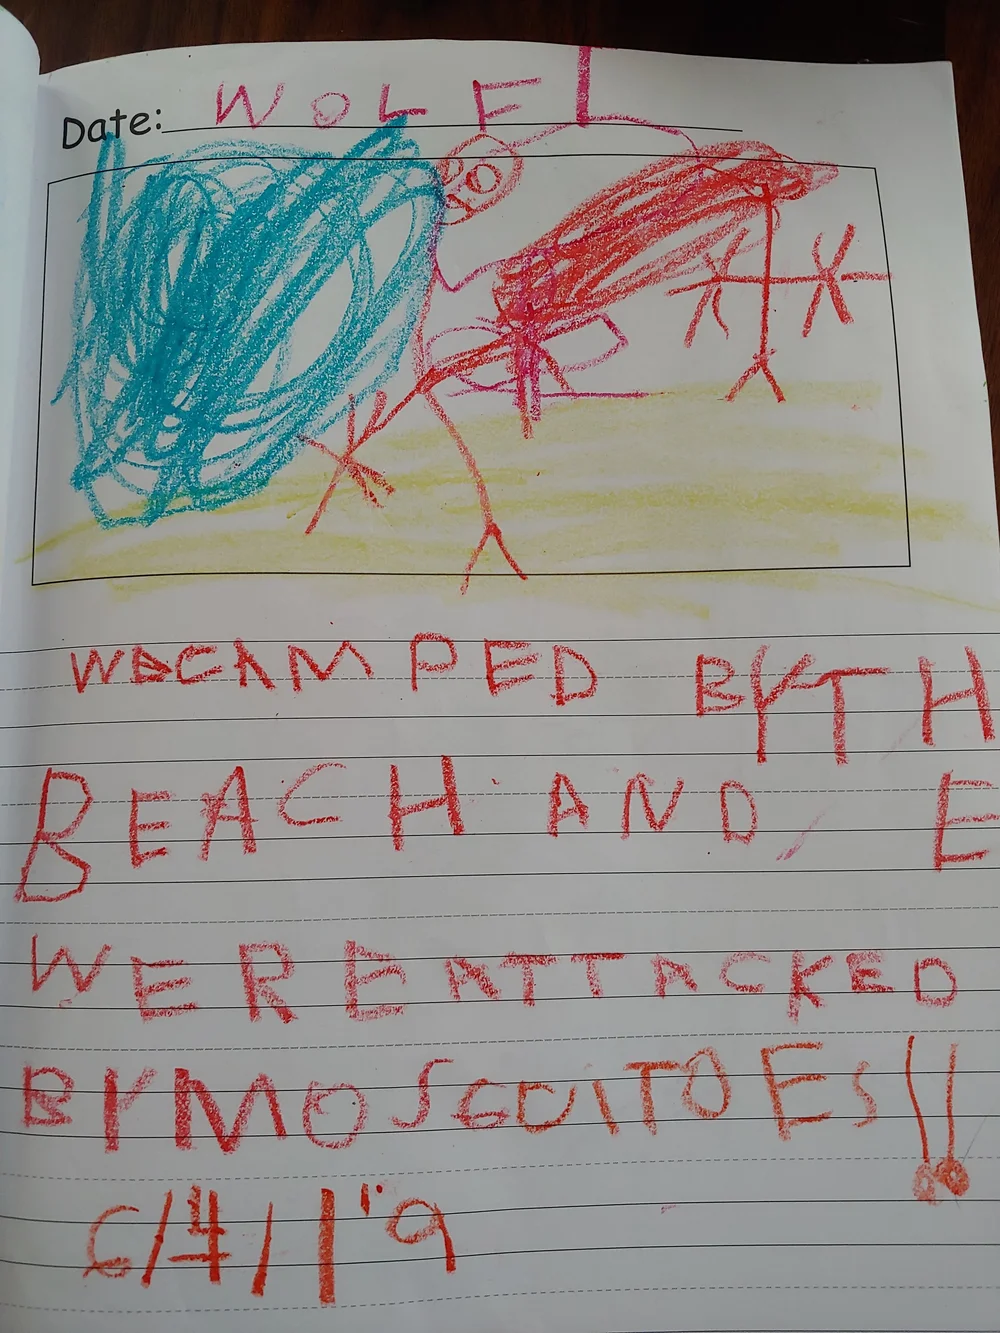 Date: WOLF
WE CAMPED BY TH
BEACH AND E
WERE ATTACKED
BY MOSCUITOES!!
6/4/19